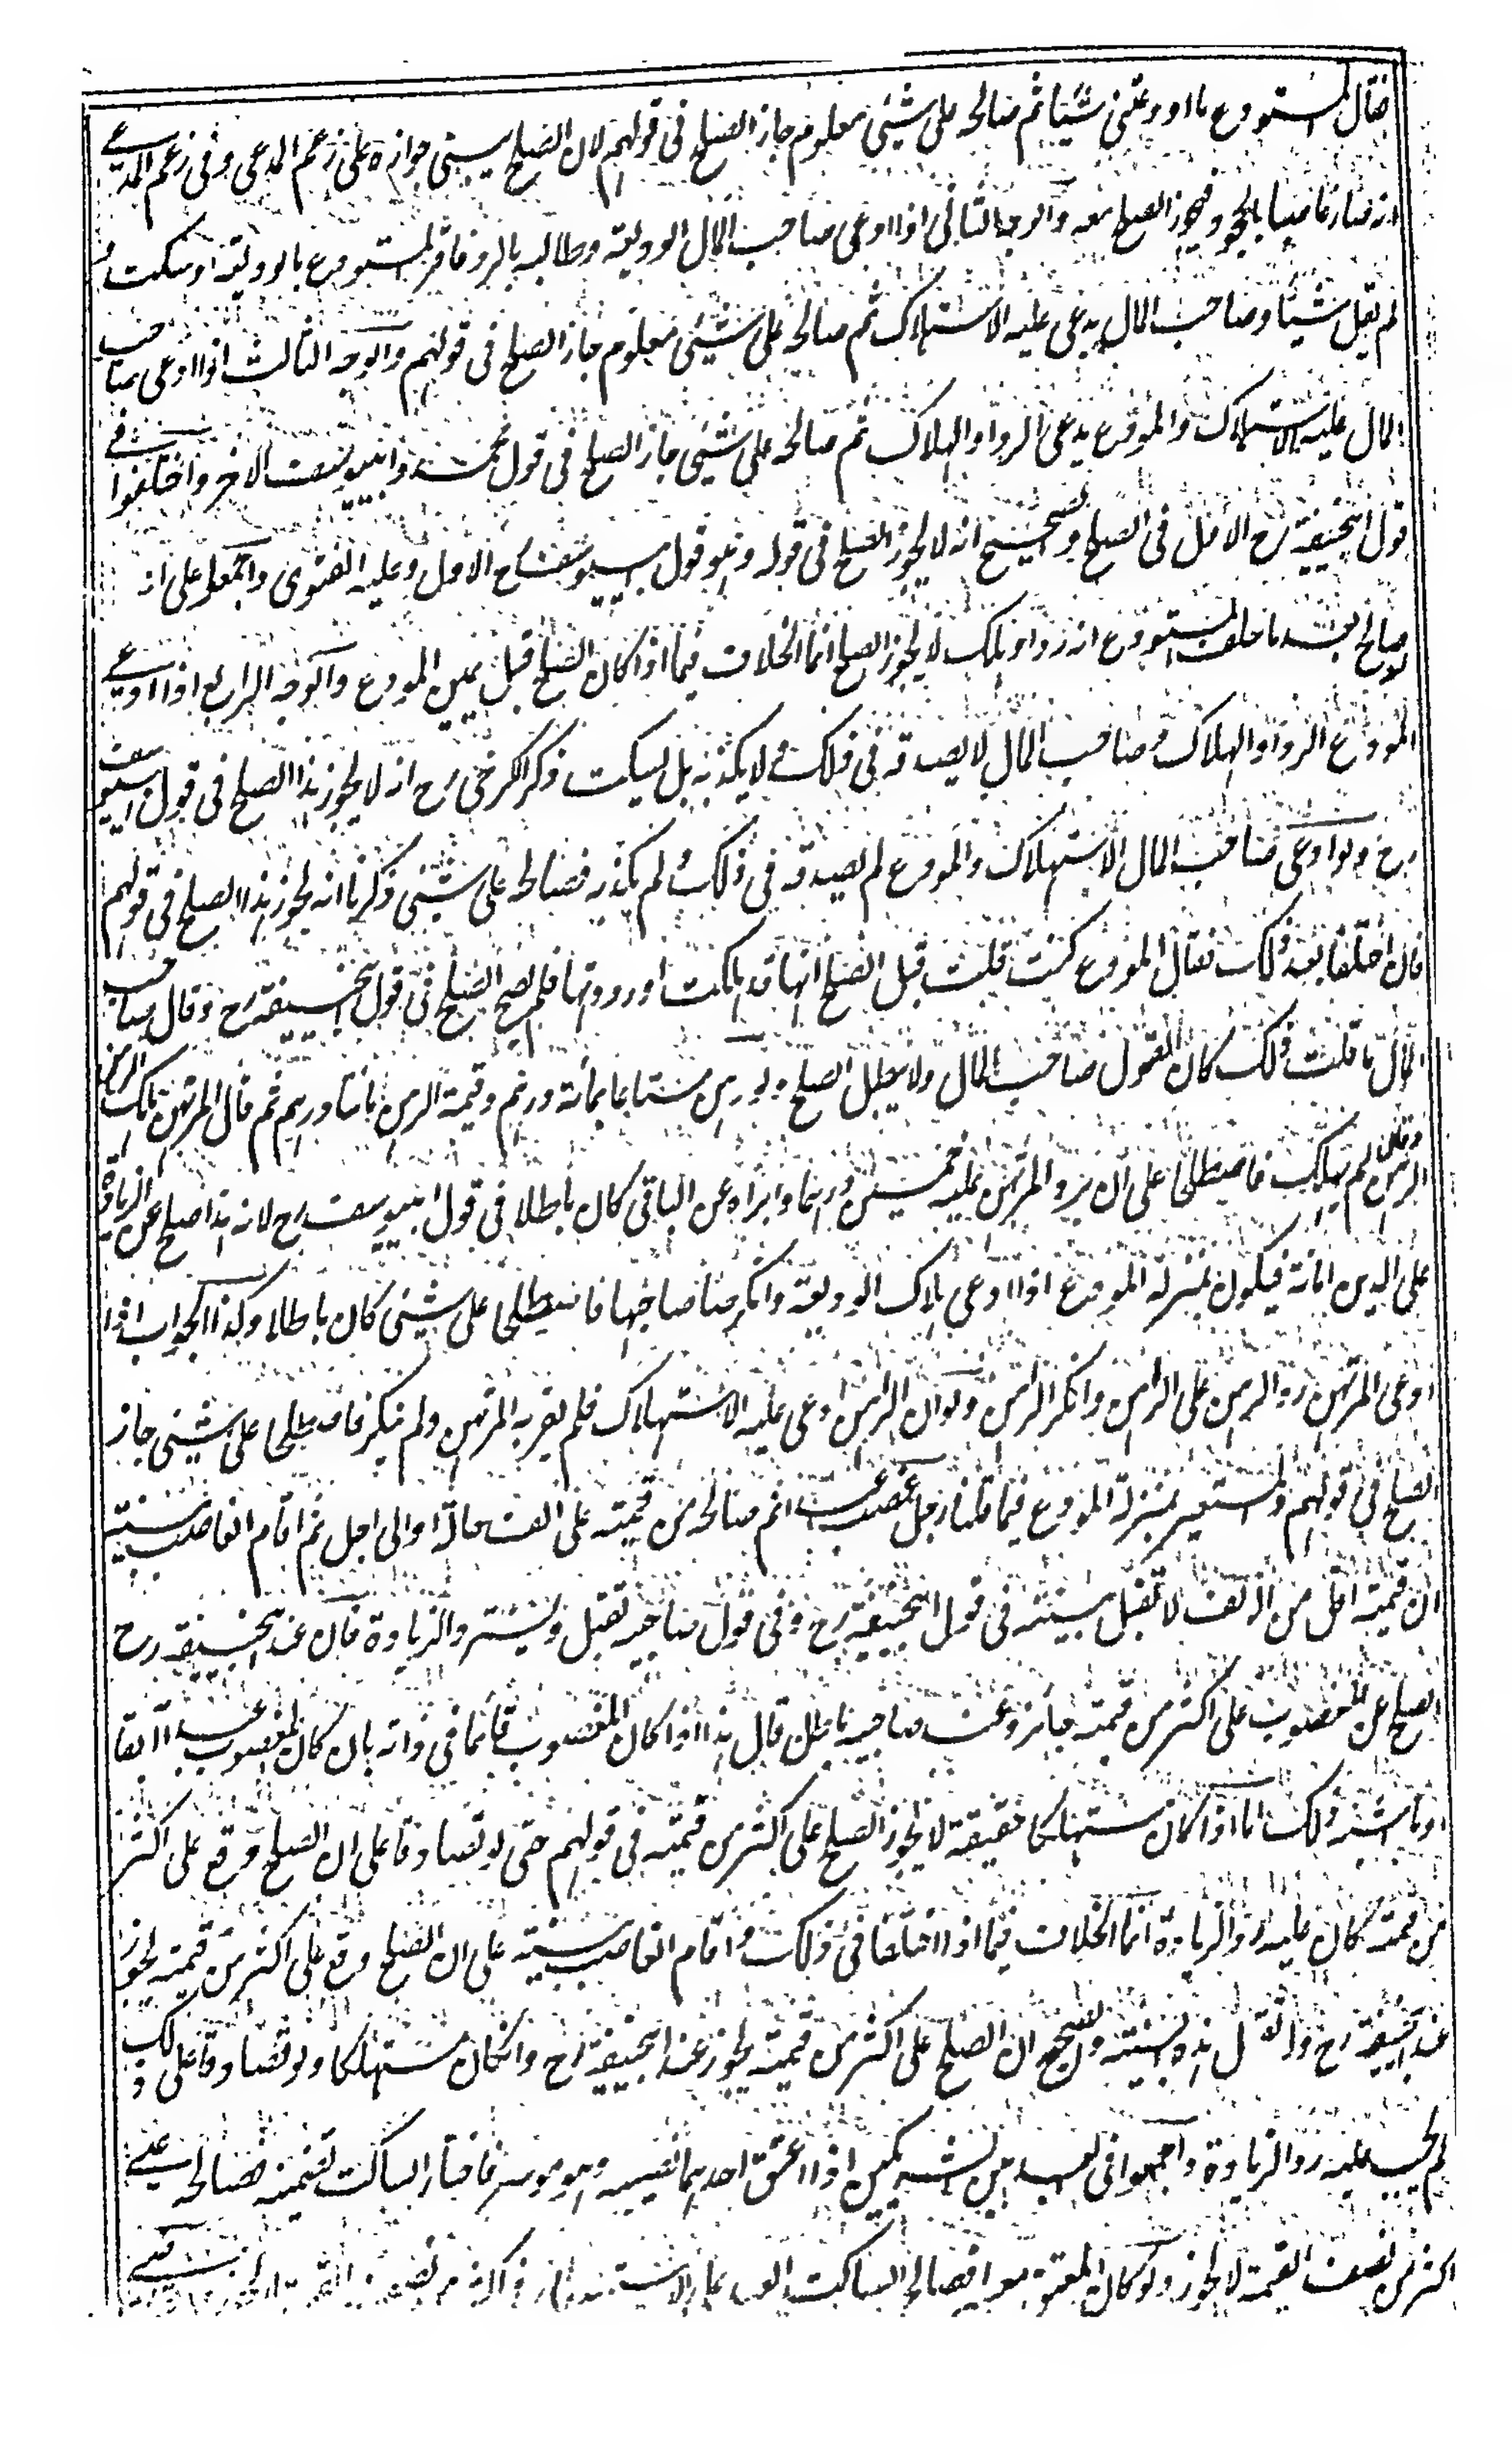 فقال المستودع ما اودعتنى شيئا ثم صالحه على شئى معلوم جاز الصلح فى قولهم لان الصلح يبتنى جوازه على زعم المدعى وفى زعم المدعى
انه صار غاصبا بالجحود فيجوز الصلح معه والوجه الثانى اذا ادعى صاحب المال الوديعة وطالبه بالرد فاقر المستودع بالوديعة او سكت و
لم يقل شيئا وصاحب المال يدعى عليه الاستهلاك ثم صالحه على شئى معلوم جاز الصلح فى قولهم والوجه الثالث اذا ادعى صاحب
المال عليه الاستهلاك والمودع يدعى الرد او الهلاك ثم صالحه على شئى جاز الصلح فى قول محمد وابيوسف الاخر واختلفوا فى
قول ابيحنيفة رح الاول فى الصلح والصحيح انه لا يجوز الصلح فى قوله وهو قول ابييوسف رح الاول وعليه الفتوى واجمعوا على انه
لو صالح بعد ما حلف المستودع انه رد او هلك لا يجوز الصلح انما الخلاف فيما اذا كان الصلح قبل يمين المودع والوجه الرابع اذا ادعى
المودع الرد او الهلاك وصاحب المال لا يصدقه فى ذلك ولا يكذبه بل يسكت ذكر الكرخى رح انه لا يجوز هذا الصلح فى قول ابييوسف
رح ولو ادعى صاحب المال الاستهلاك والمودع لم يصدقه فى ذلك ولم يكذبه فصالحه على شئى ذكرنا انه يجوز هذا الصلح فى قولهم
فان اختلفا بعد ذلك فقال المودع كنت قلت قبل الصلح انها قد هلكت او رددتها فلم يصح الصلح فى قول ابيحنيفة رح وقال صاحب
المال ما قلت ذلك كان القول لصاحب المال ولا يبطل الصلح ولو رهن متاعا بمائة درهم وقيمة الرهن مائتا درهم ثم قال المرتهن هلك الرهن
وقال الراهن لم يهلك فاصطلحا على ان يرد المرتهن عليه خمسين درهما وابراه عن الباقى كان باطلا فى قول ابييوسف رح لانه هذا صلح عن الزيادة
على الدين امانة فيكون بمنزلة المودع اذا ادعى هلاك الوديعة وانكر صاحبها فاصطلحا على شئى كان باطلا وكذا الجواب اذا
ادعى المرتهن رد الرهن على الراهن وانكر الراهن ولو ان الراهن ادعى عليه الاستهلاك فلم يقر به المرتهن ولم ينكر فاصطلحا على شئى جاز
الصلح فى قولهم والمستعير بمنزلة المودع فيما قلنا رجل غصب ثم صالحه من قيمته على الف حالة او الى اجل ثم اقام الغاصب بينة
ان قيمته اقل من الالف لا تقبل بينته فى قول ابيحنيفة رح وفى قول صاحبيه تقبل ويسترد الزيادة فان عند ابيحنيفة رح
الصلح عن المغصوب على اكثر من قيمته جائز وعند صاحبيه باطل قال هذا اذا كان المغصوب قائما فى ذاته بان كان المغصوب عبدا آبقا
او ما اشبه ذلك اما اذا كان مستهلكا حقيقة لا يجوز الصلح على اكثر من قيمته فى قولهم حتى لو تصادقا على ان الصلح وقع على اكثر
من قيمته كان عليه رد الزيادة انما الخلاف فيما اذا اختلفا فى ذلك واقام الغاصب بينة على ان الصلح وقع على اكثر من قيمته يجوز
عند ابيحنيفة رح ولا تقبل هذه البينة والصحيح ان الصلح على اكثر من قيمته يجوز عند ابيحنيفة رح وان كان مستهلكا ولو تصادقا على ذلك
لم يجب عليه رد الزيادة واجمعوا فى العبد بين الشريكين اذا اعتق احدهما نصيبه وهو موسر فاختار الساكت تضمينه فصالحه على
اكثر من نصف القيمة لا يجوز ولو كان المعتق معسرا فصالح الساكت العبد